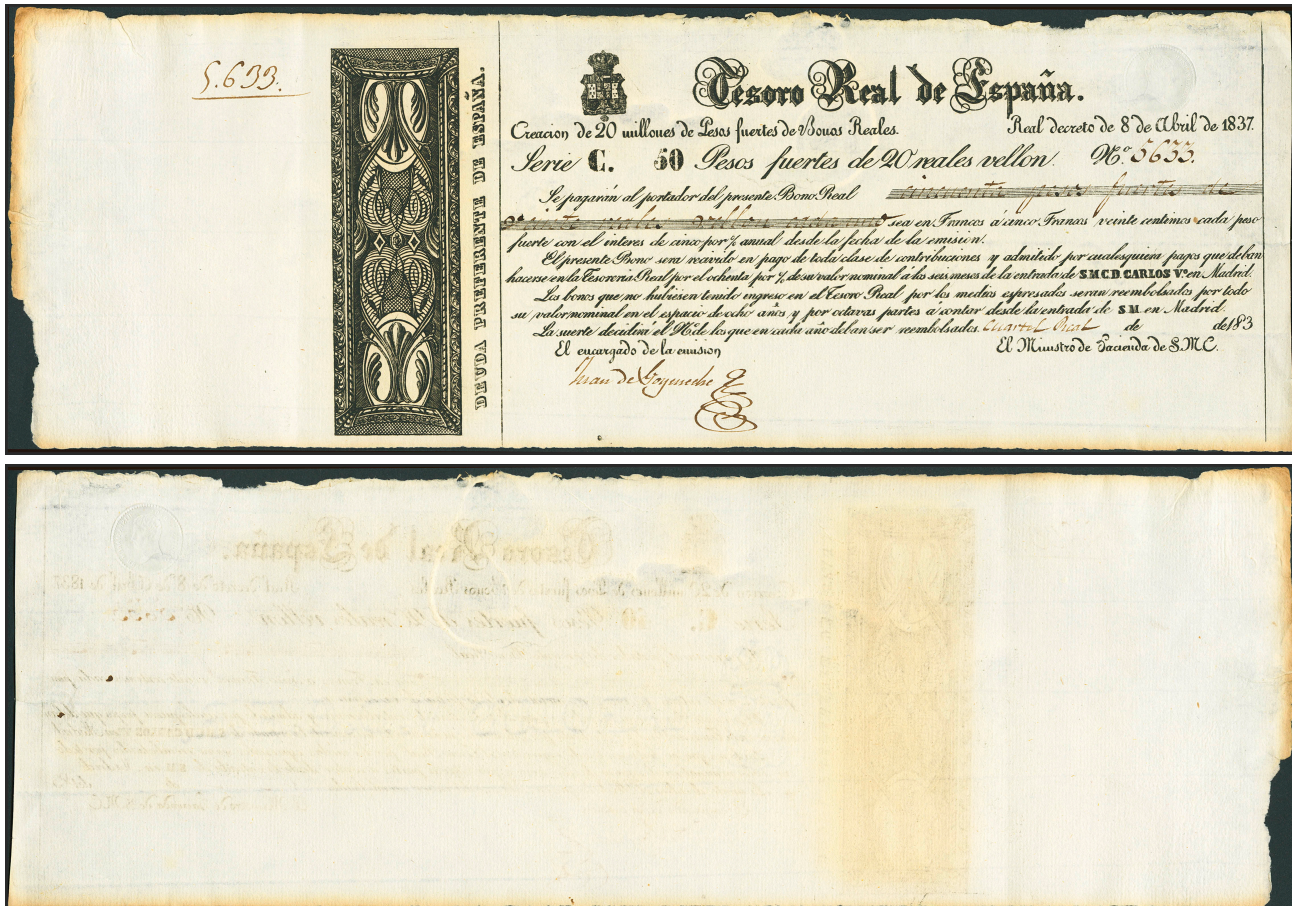 5.633.
DEUDA PREFERENTE DE ESPAÑA.
Tesoro Real de España.
Creacion de 20 millones de Pesos fuertes de Bonos Reales. Real decreto de 8 de Abril de 1837.
Serie C. 50 Pesos fuertes de 20 reales vellon. Nº 5633.
Se pagarán al portador del presente Bono Real cincuenta pesos fuertes de
veinte reales vellon cada uno sea en Francos á cinco Francos veinte centimos cada peso
fuerte con el interes de cinco por % anual desde la fecha de la emision.
El presente Bono sera recivido en pago de toda clase de contribuciones y admitido por cualesquiera pagos que deban
hacerse en la Tesoreria Real por el ochenta por % de su valor nominal á los seis meses de la entrada de S M C D. CARLOS Vº en Madrid.
Los bonos que no hubiesen tenido ingreso en el Tesoro Real por los medios espresados seran reembolsados por todo
su valor nominal en el espacio de ocho años y por octavas partes á contar desde la entrada de S M en Madrid.
La suerte decidirá el Nº de los que en cada año deban ser reembolsados. Cuartel Real de de 183
El encargado de la emision El Ministro de Hacienda de S.M.C.
Juan de Goyeneche